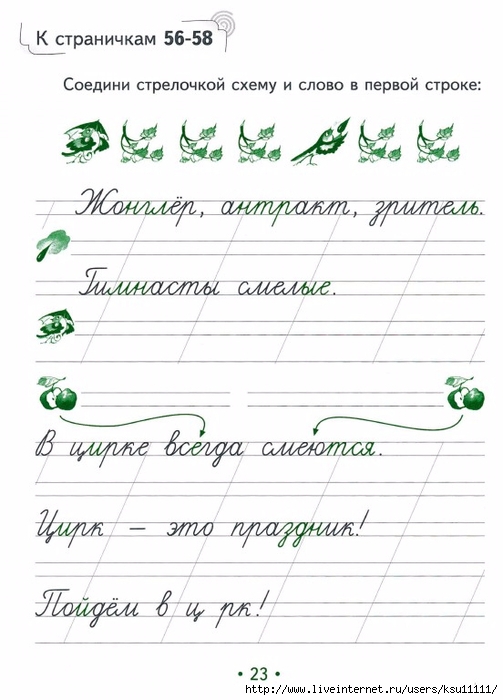 К страничкам 56-58
Соедини стрелочкой схему и слово в первой строке:
Жонглёр, антракт, зритель.
Гимнасты смелые.
В цирке всегда смеются.
Цирк – это праздник!
Пойдём в ц рк!
• 23 •
http://www.liveinternet.ru/users/ksu11111/